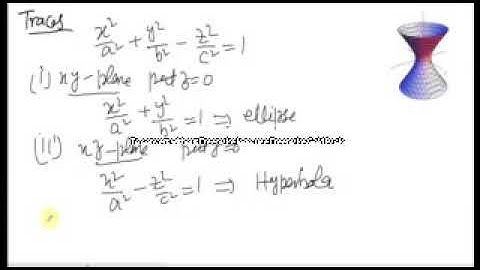 Traces
x²/a² + y²/b² - z²/c² = 1
(i) xy-plane put z=0
x²/a² + y²/b² = 1 ⇒ ellipse
(ii) xz-plane put y=0
x²/a² - z²/c² = 1 ⇒ Hyperbola